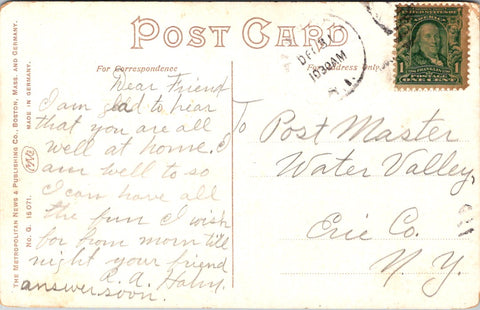 POST CARD
For Correspondence
For Address Only
DEC
10 30 AM
SERIES 1902
POSTAGE
ONE CENT
THE METROPOLITAN NEWS & PUBLISHING CO., BOSTON, MASS. AND GERMANY.
MADE IN GERMANY.
No. G. 16071.
Dear Friend
I am glad to hear
that you are all
well at home. I
am well to so
I can have all
the fun I wish
for from morn till
night your friend
R. A. Hahn.
answer soon.
To
Post Master
Water Valley
Erie Co.
N. Y.